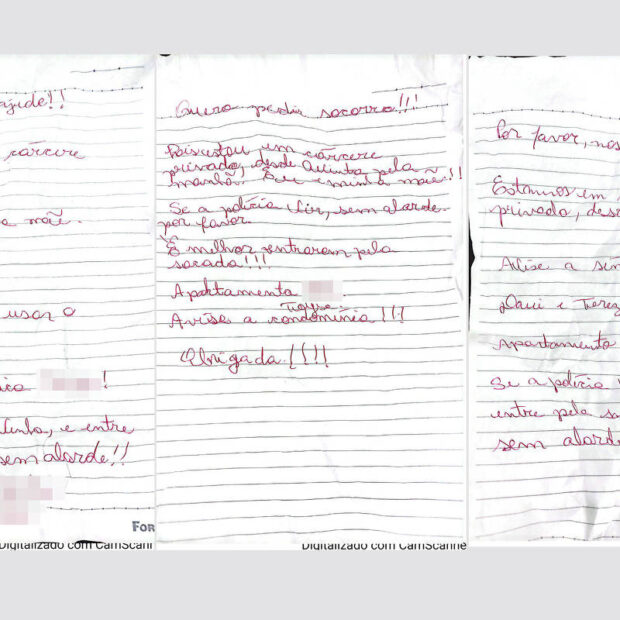 ajude!!
cárcere
a mãe.
usar o
!
e entre
sem alarde!!
FOR
Digitalizado com CamScann
Quero pedir socorro!!!
Pois estou em cárcere
privado, desde Quinta pela
manhã. Eu e minha mãe!!
Se a polícia vir, sem alarde
por favor.
É melhor entrarem pela
sacada!!!
Apartamento
Avises a condomínia!!!
Obrigada!!!!
Digitalizado com CamScanne
Por favor, nos
Estamos em
privado, des
Avise a sín
Apartamento
Se a polícia
entre pela sa
sem alarde